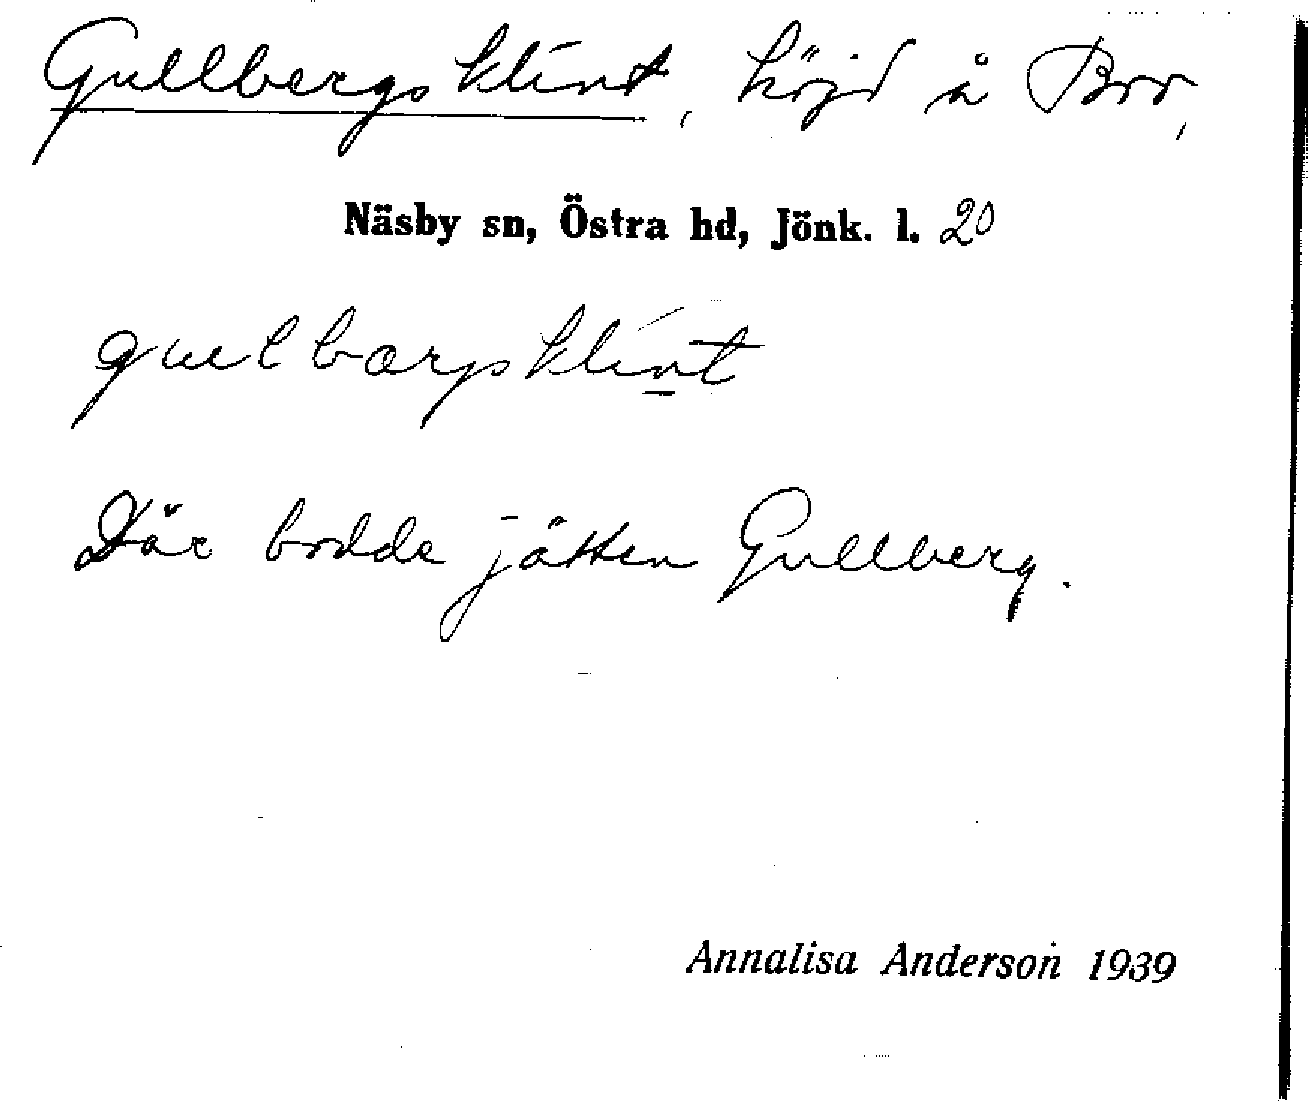 Gullbergs klint, höjd å Bro,
Näsby sn, Östra hd, Jönk. l. 20
Där bodde jätten Gullberg.
Annalisa Anderson 1939